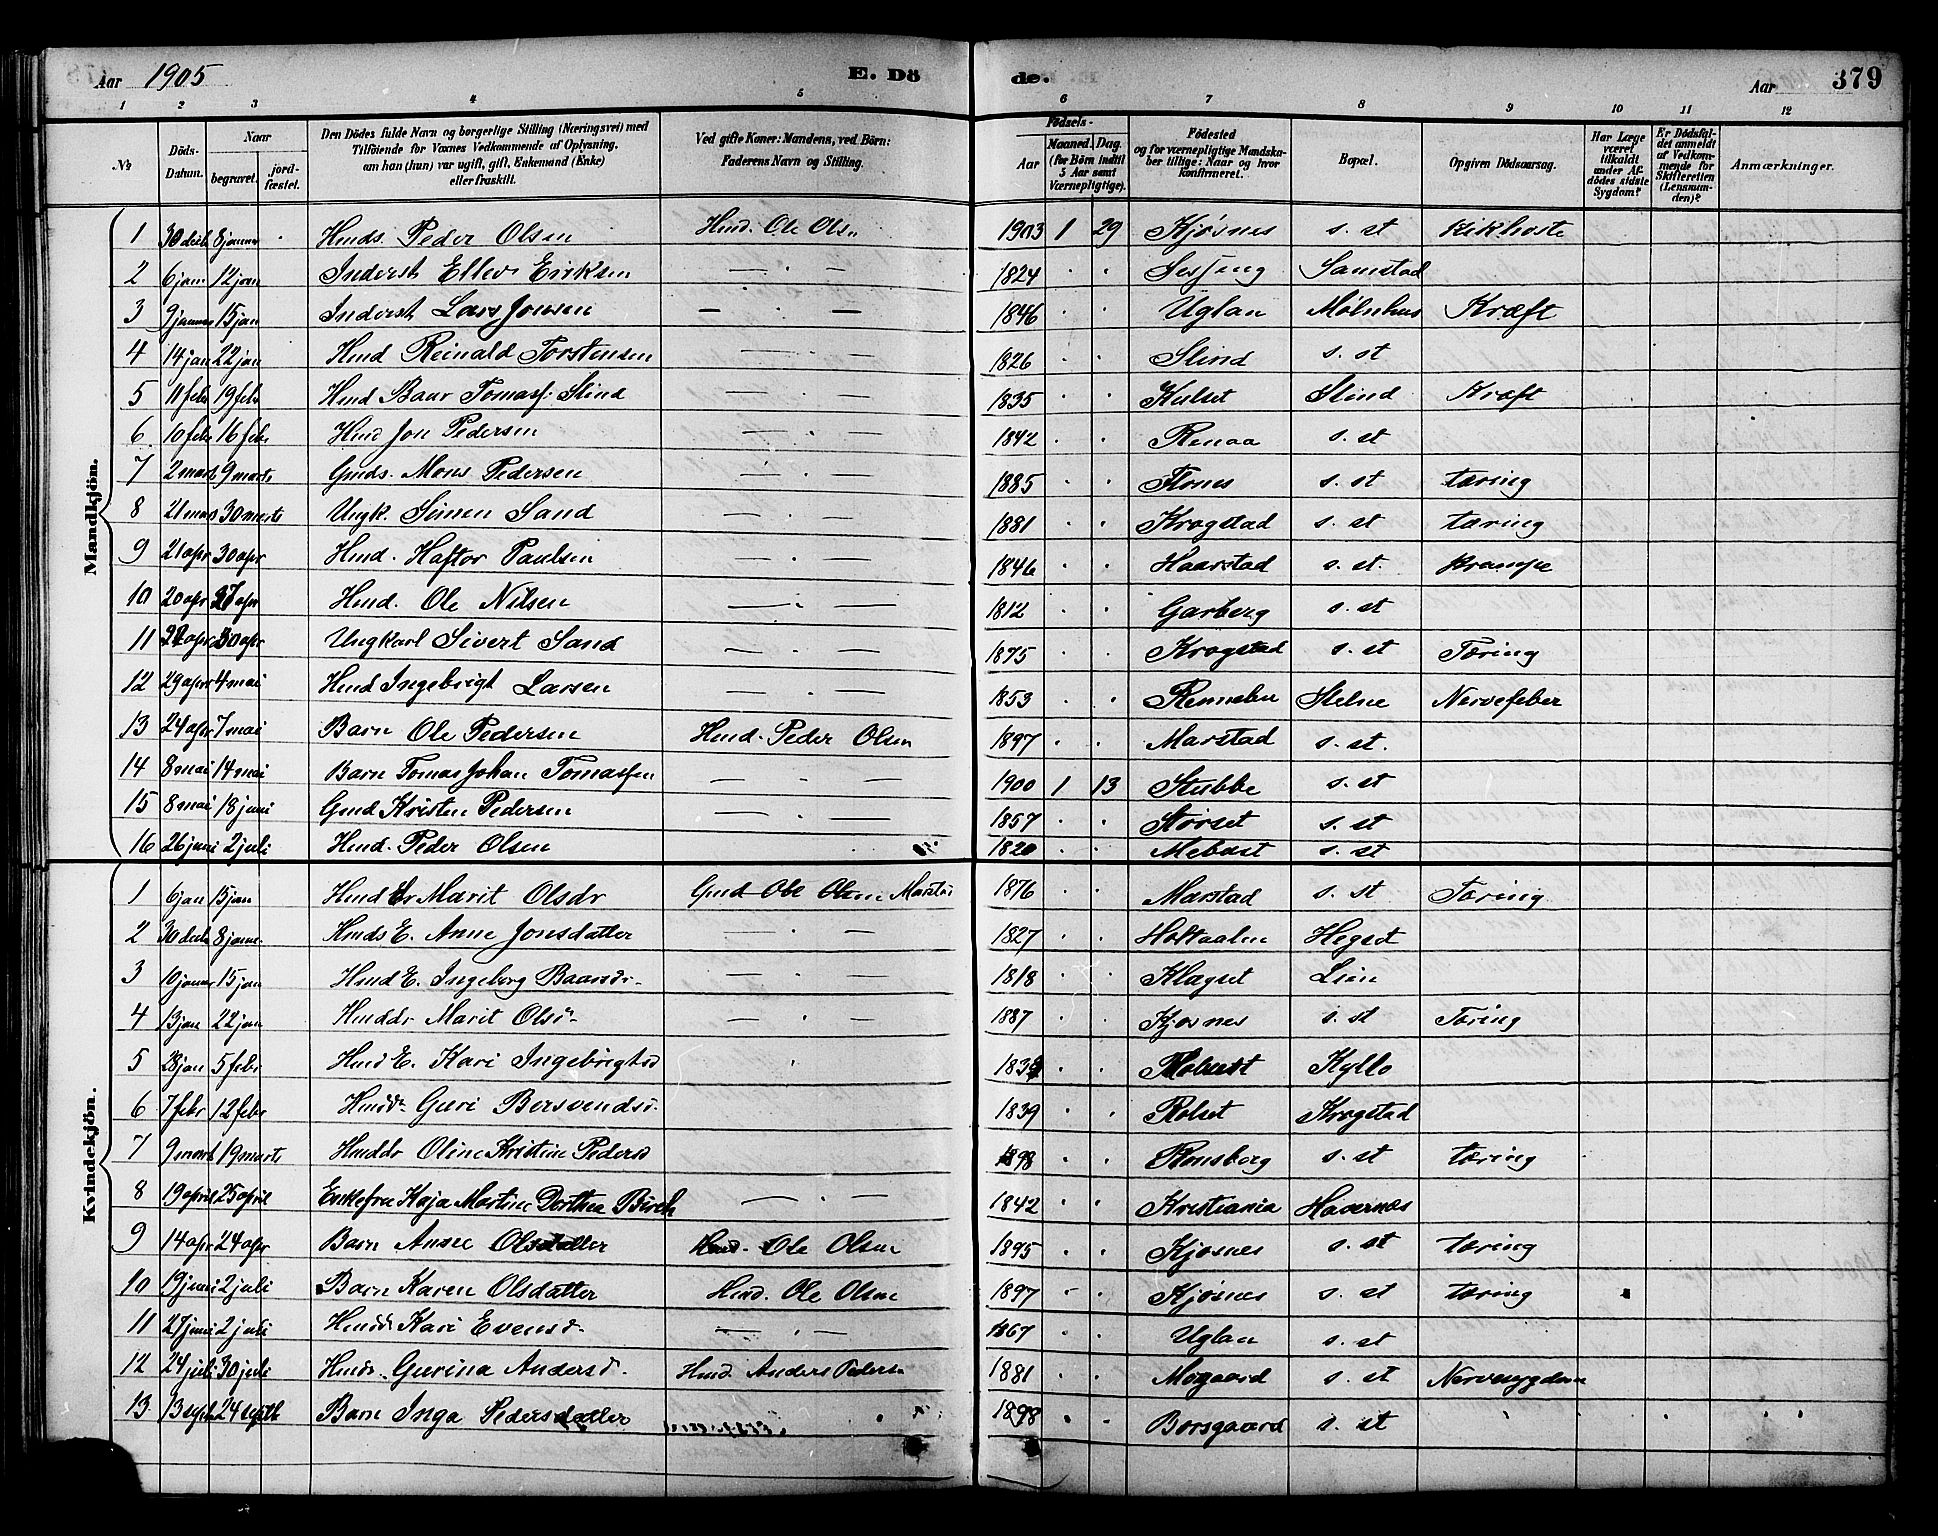 Aar 1905
E. Dö
de.
Aar
379
1 2 3 4 5 6 7 8 9 10 11 12
№
Döds-Datum.
Naar
begravet.
jord-fæstet.
Den Dödes fulde Navn og borgerlige Stilling (Næringsvei) med
Tilföiende for Voxnes Vedkommende af Oplysning,
om han (hun) var ugift, gift, Enkemand (Enke)
eller fraskilt.
Ved gifte Koner: Mandens, ved Börn:
Faderens Navn og Stilling.
Födsels-
Aar
Maaned.
Dag.
(for Börn indtil
5 Aar samt
Værnepligtige).
Födested
og for værnepligtige Mandska-
ber tillige: Naar og hvor
konfirmeret.
Bopæl.
Opgiven Dödsaarsag.
Har Læge
været
tilkaldt
under Af-
dödes sidste
Sygdom?
Er Dödsfal-
det anmeldt
af Vedkom-
mende for
Skifteretten
(Lensman-
den)?
Anmærkninger.
Mandkjön.
1 30 decb 8 januar Hmds. Peder Olsen Hmd. Ole Olsn 1903 1 29 Kjøsnes s. st Kikhoste
2 6 jan 12 jan Inderst Ellev Eriksen — " — 1824 " " Selbu Samstad
3 9 januar 15 jan Inderst Lars Jonsen — " — 1846 " " Uglan Mølnhus Kræft
4 14 jan 22 jan Hmd Reinald Torstensen — " — 1826 " " Slind s. st
5 11 febr 19 febr Hmd Baar Tomass. Slind — " — 1835 " " Kulset Slind Kræft
6 10 febr 16 febr Hmd Jon Pedersen — " — 1842 " " Renaa s. st
7 2 mars 9 marts Gmds. Mons Pedersen — " — 1885 " " Flones s. st tæring
8 21 mars 30 marts Ungk. Simen Sand — " — 1881 " " Krogstad s. st tæring
9 21 apr 30 apr Hmd. Haftor Paulsen — " — 1846 " " Haarstad s. st. Krampe
10 20 apr 27 apr Hmd. Ole Nilsen — " — 1812 " " Garberg s. st
11 22 apr 30 apr Ungkarl Sivert Sand — " — 1875 " " Krogstad s. st Tæring
12 29 apr 4 mai Hmd Ingebrigt Larsen — " — 1853 " " Rennebu Stelne Nervefeber
13 24 apr 7 mai Barn Ole Pedersen Hmd. Peder Olsen 1897 " " Marstad s. st.
14 8 mai 14 mai Barn Tomas Johan Tomassen — " — 1900 1 13 Stubbe s. st
15 8 mai 18 juni Gmd Kristen Pedersen — " — 1857 " " Størset s. st
16 26 juni 2 juli Hmd. Peder Olsen 1820 " " Mebust s. st
Kvindekjön.
1 6 jan 15 jan Marit Olsdr Gmd Ole Olsen 1876 " " Marstad s. st Tæring
2 30 decb 8 janu. Hmds E. Anne Jonsdatter — " — 1827 " " Holtaalen Hegset
3 10 januar 15 jan Hmd E. Ingeborg Baarsdr. — " — 1818 " " Klegset Lien
4 13 jan 22 jan Hmddr Marit Olsd. — " — 1887 " " Kjøsnes s. st Tæring
5 28 jan 5 febr Hmd E. Kari Ingebrigtsd " Kyllo
6 7 febr 12 febr Hmdd. Guri Bersvendsd. — " — 1839 " " Rolset Krogstad
7 9 mars 19 marts Hmddr Oline Kristine Pedersd — " — 1898 " " Rønsberg s. st tæring
8 19 april 25 april Enkefru Kaja Martine Dorthea Birch — " — 1842 " " Kristiania Havernæs
9 14 apr 24 apr Barn Anne Olsdatter Hmd. Ole Olsen 1895 " " Kjøsnes s. st tæring
10 19 juni 2 juli Barn Karen Olsdatter Hmd. Ole Olsen 1897 " " Kjøsnes s. st tæring
11 27 juni 2 juli Hmdd. Kari Evensd. — " — 1867 " " Uglan s. st
12 24 juli 30 juli Hmdr. Gurina Andersd. Hmd. Anders Pedersn 1881 " " Mogaard s. st
13 13 septb 24 septb Barn Inga Pedersdatter " 1898 " " Borsgaard s. st " " "